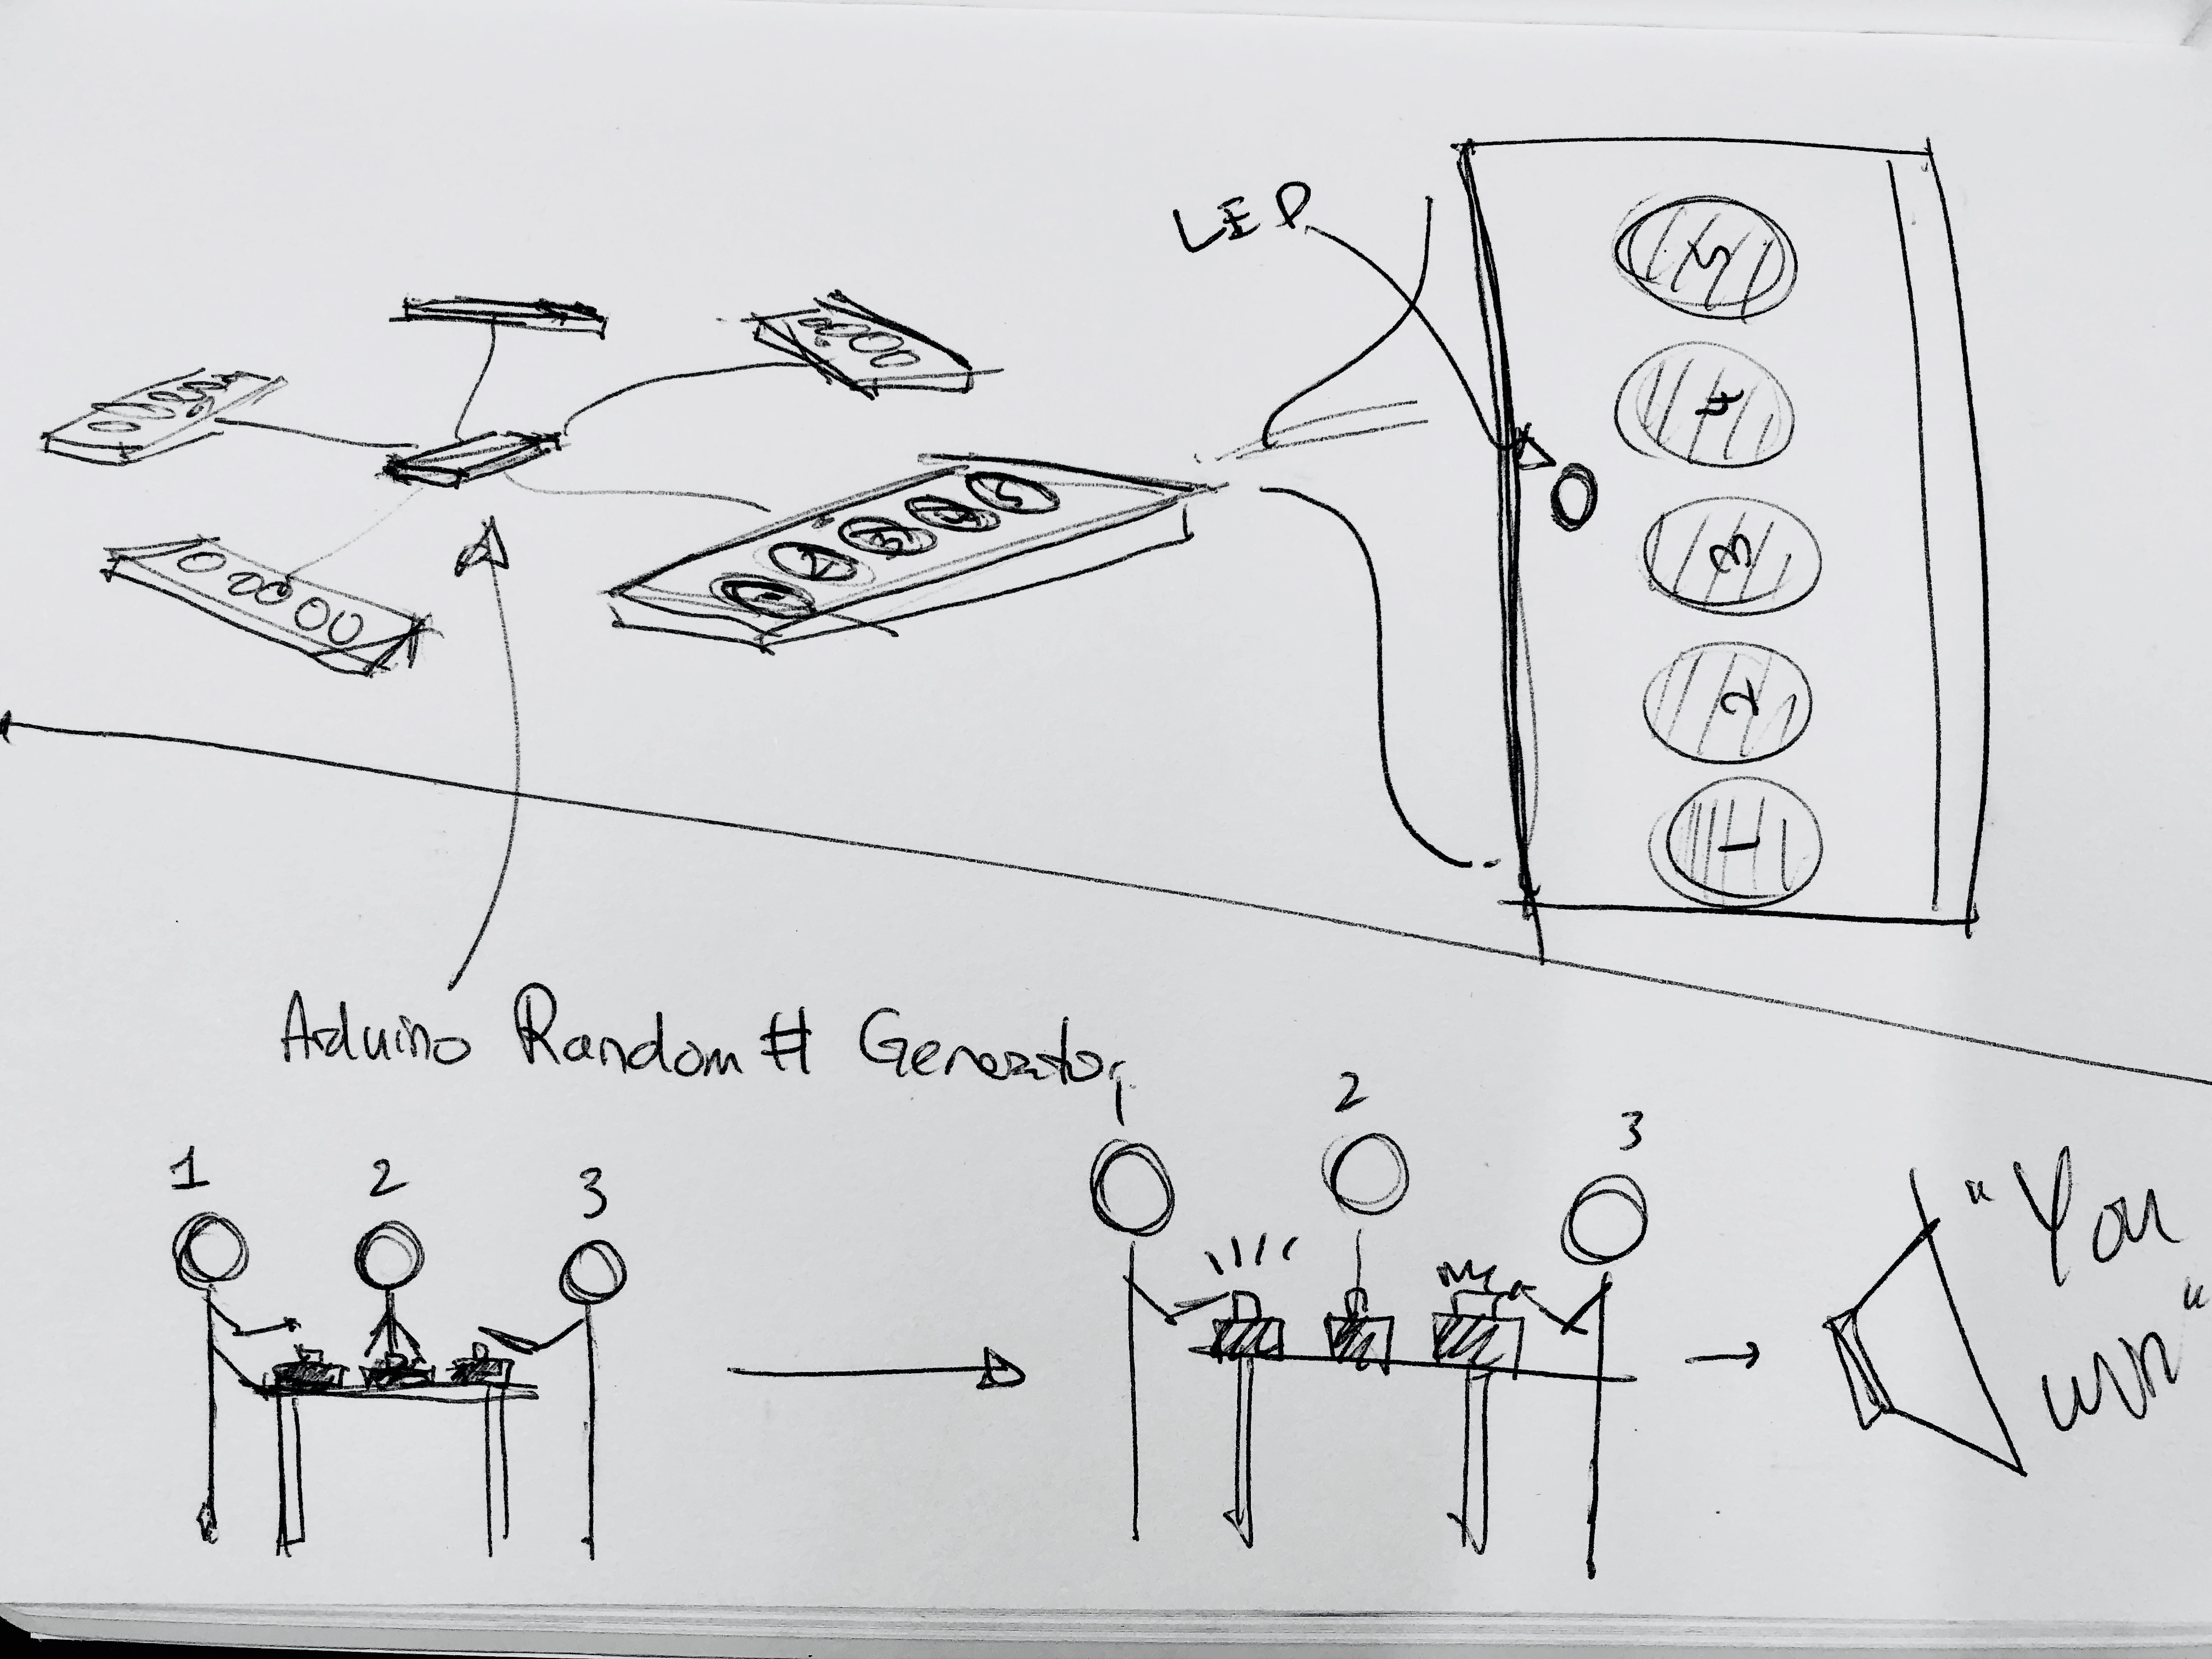 LED
5
4
3
2
1
1 2 3 4 5
Arduino Random # Generator
1 2 3
1 2 3
"You
win"